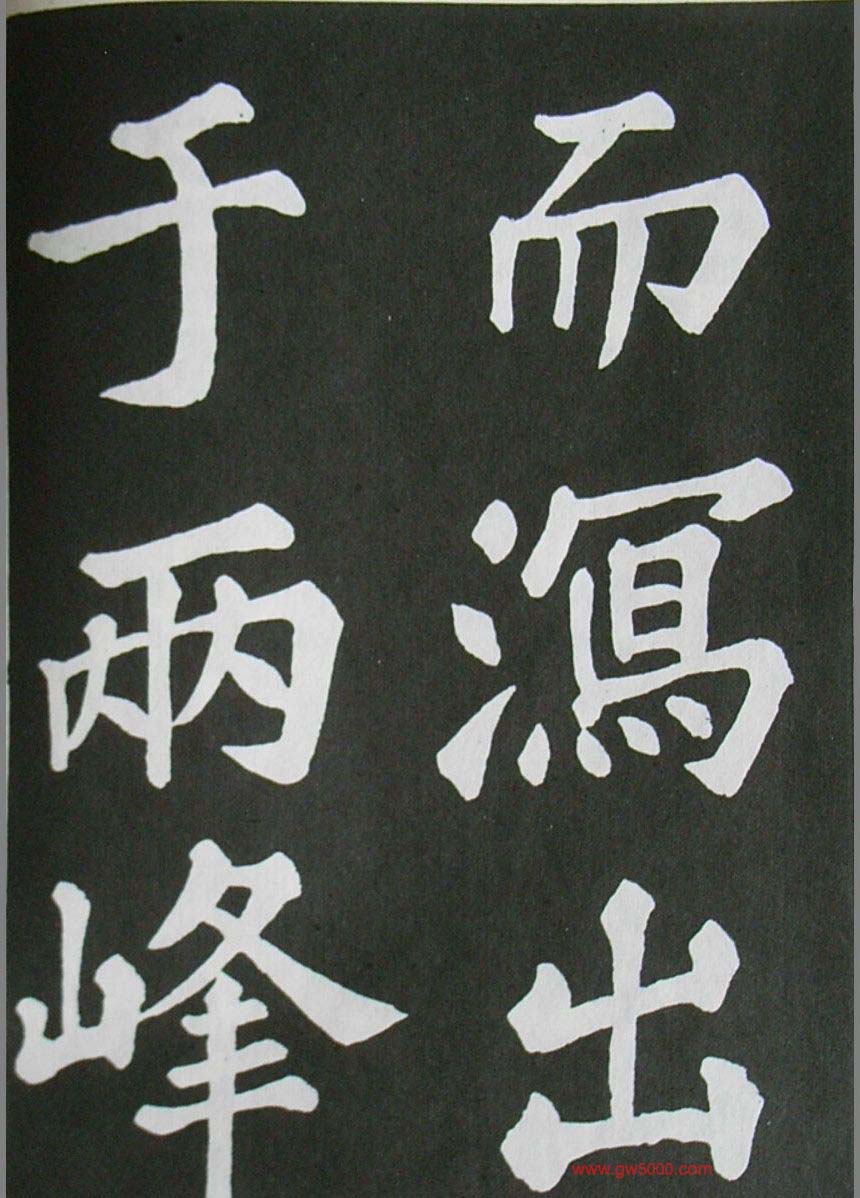 而瀉出
于兩峰
www.gw5000.com